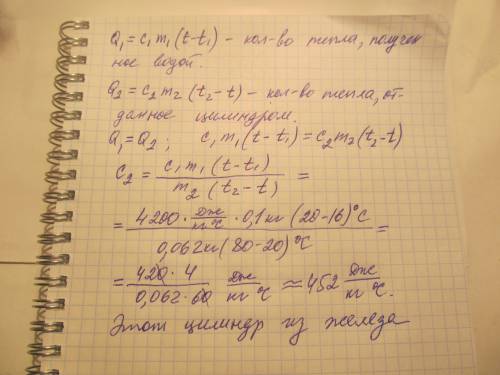 Q₁ = c₁m₁(t-t₁) - кол-во тепла, получен
ное водой.
Q₂ = c₂m₂(t₂-t) - кол-во тепла, от-
данное цилиндром.
Q₁ = Q₂ ; c₁m₁(t-t₁) = c₂m₂(t₂-t)
c₂ = c₁m₁(t-t₁) / m₂(t₂-t) =
= 4200 · Дж/кг°С · 0,1кг (20-16)°С / 0,062кг(80-20)°С =
= 420 · 4 / 0,062 · 60 Дж/кг°С ≈ 452 Дж/кг°С.
Этот цилиндр из железа